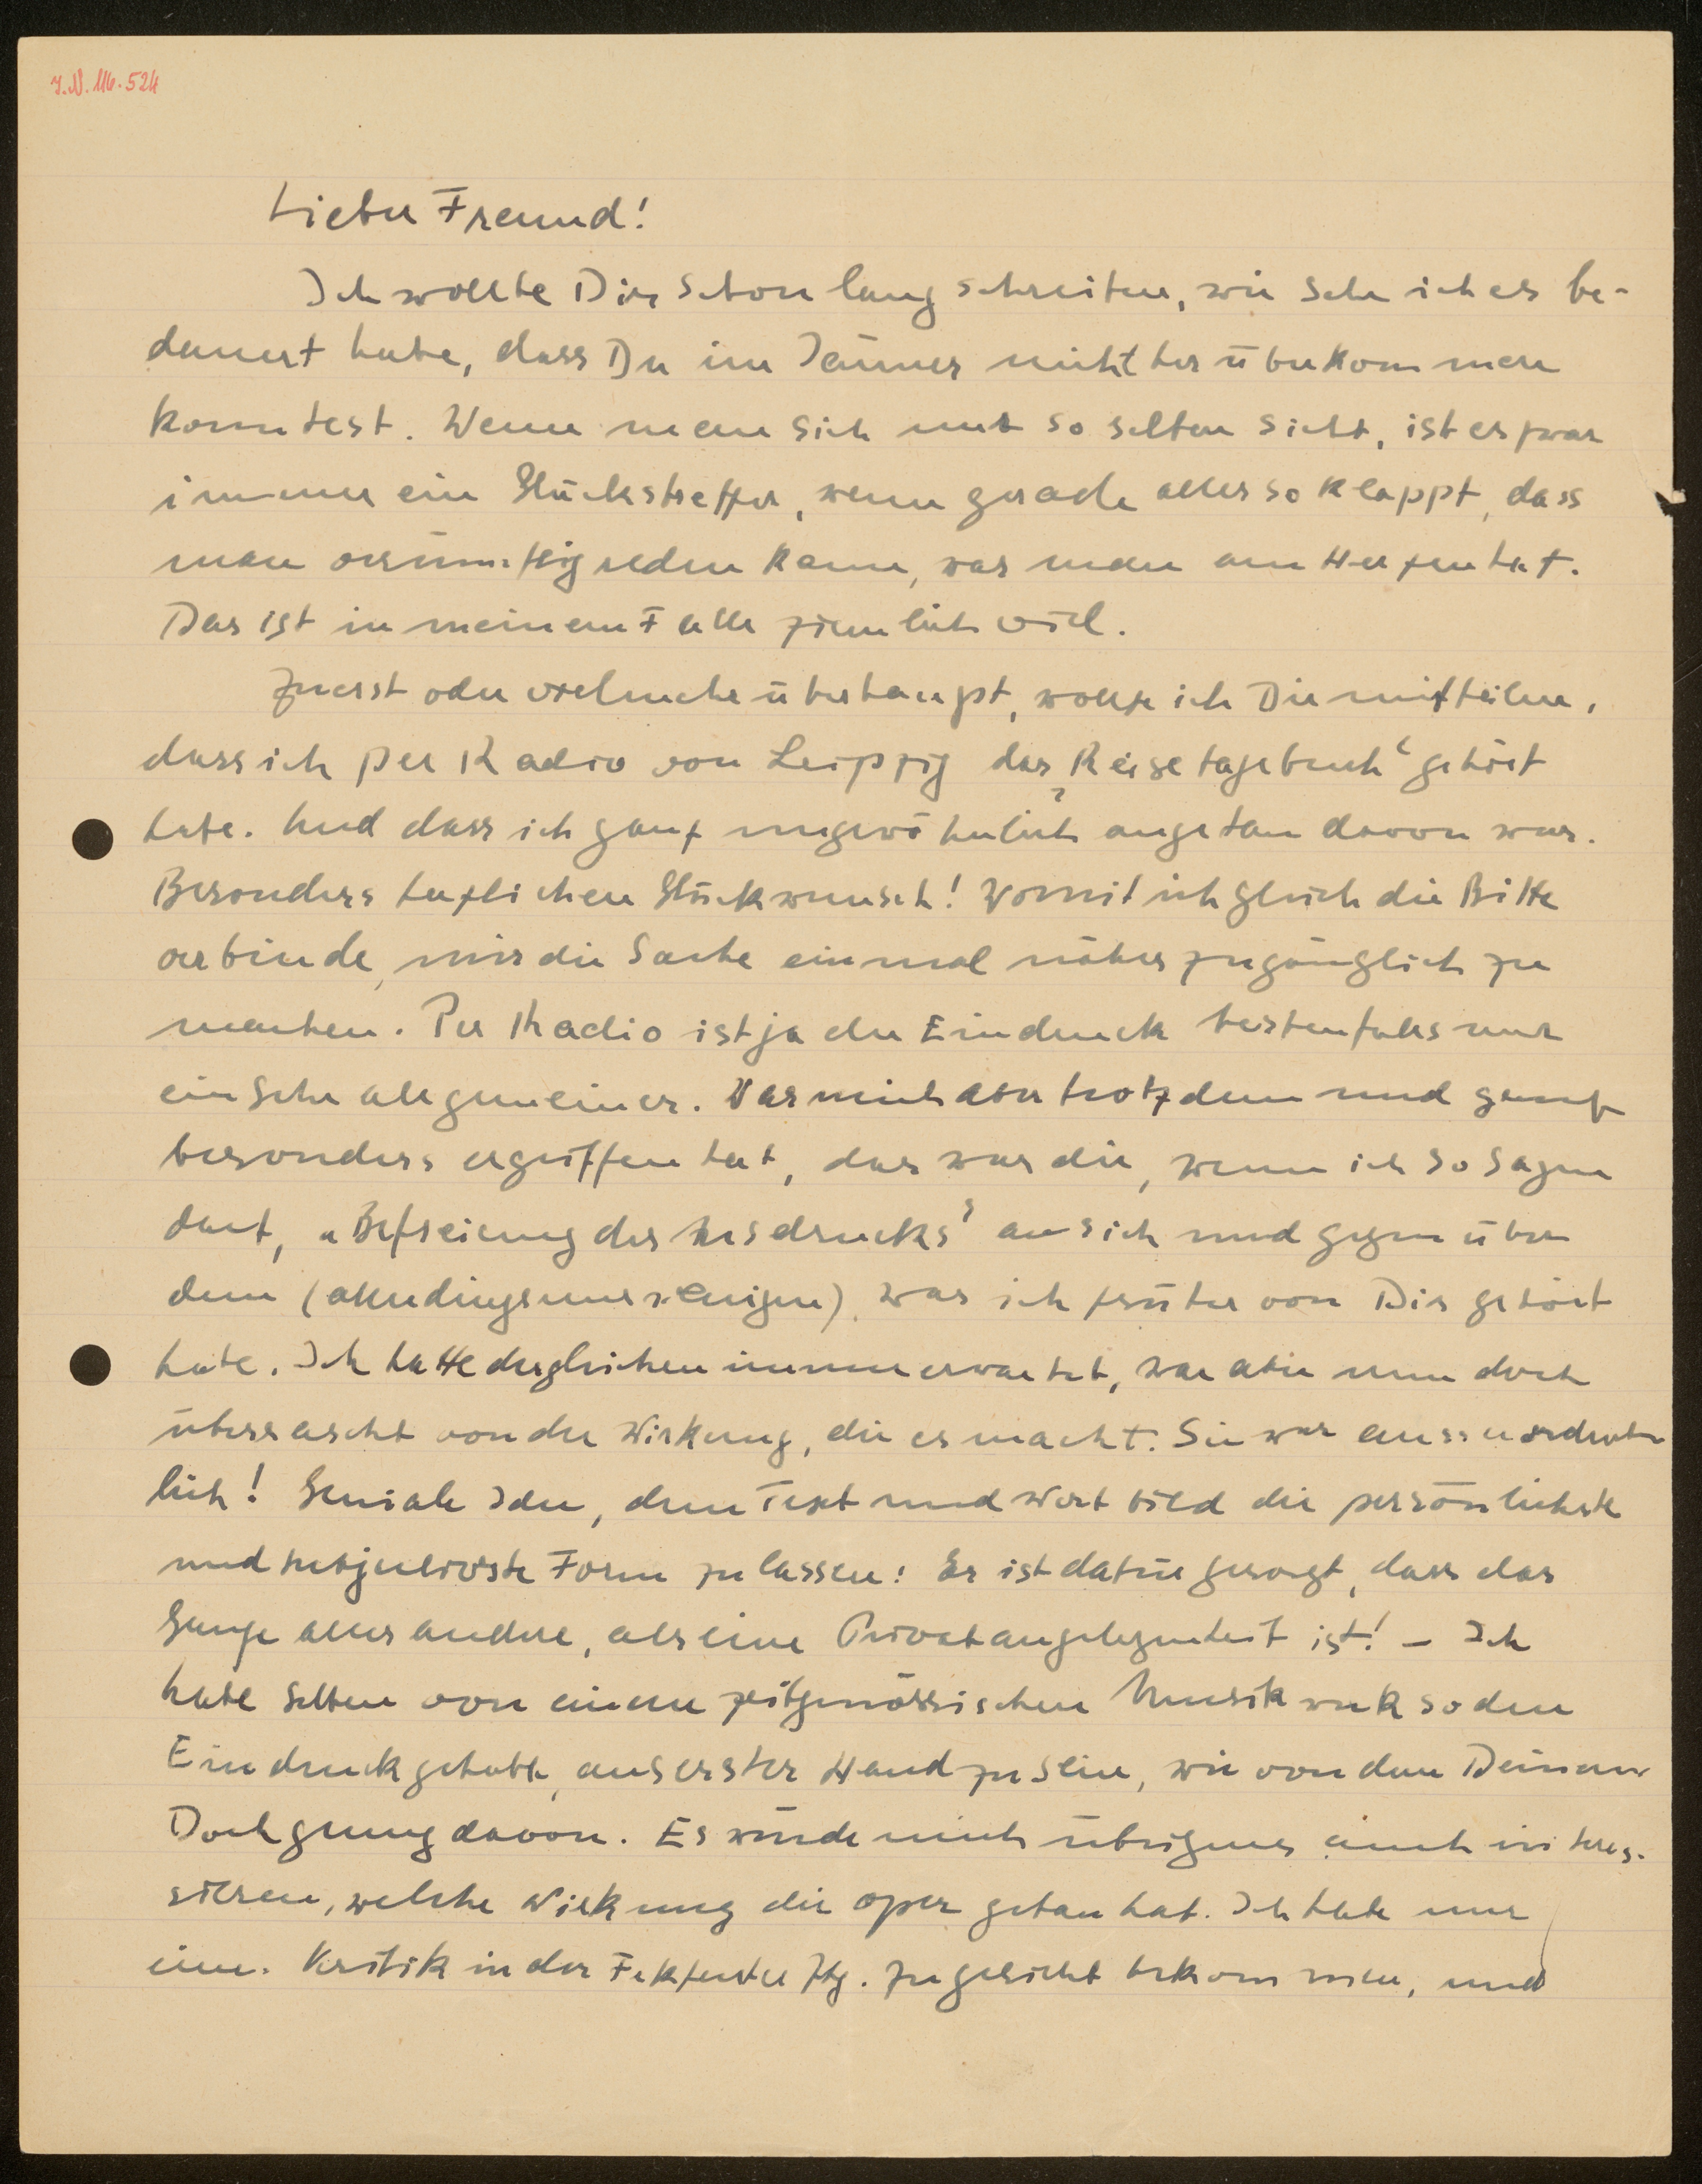 I.N. 116.524
Lieber Freund!
Ich wollte Dir schon lang schreiben, wie sehr ich es be-
dauert habe, dass Du im Jänner nicht herüberkommen
konntest. Wenn man sich nur so selten sieht, ist es zwar
immer ein Glückstreffer, wenn gerade alles so klappt, dass
man vernünftig reden kann, was man am Herzen hat.
Das ist in meinem Falle ziemlich viel.
Zuerst oder vielmehr überhaupt, wollte ich Dir mitteilen,
dass ich per Radio von Leipzig das „Reisetagebuch“ gehört
habe. Und dass ich ganz ungewöhnlich angetan davon war.
Besonders herzlichen Glückwunsch! Womit ich gleich die Bitte
verbinde, mir die Sache einmal näher zugänglich zu
machen. Per Radio ist ja der Eindruck bestenfalls nur
ein sehr allgemeiner. Was mich aber trotzdem und ganz
besonders ergriffen hat, das war die, wenn ich so sagen
darf, „Befreiung des Ausdrucks“ an sich und gegenüber
dem (allerdings nur wenigen), was ich früher von Dir gehört
habe. Ich hatte dergleichen immer erwartet, war aber nun doch
überrascht von der Wirkung, die es macht. Sie war ausserordent-
lich! Geniale Idee, dem Text und Wortbild die persönlichste
und subjectivste Form zu lassen! Es ist dafür gesorgt, dass das
Ganze alles andere, als eine Privatangelegenheit ist! – Ich
habe selten von einem zeitgenössischen Musikwerk so den
Eindruck gehabt, aus erster Hand zu sein, wie von dem Deinen.
Doch genug davon. Es würde mich übrigens auch interes-
sieren, welche Wirkung die Oper getan hat. Ich habe nur
eine Kritik in der Ztg. zu gesicht bekommen, und